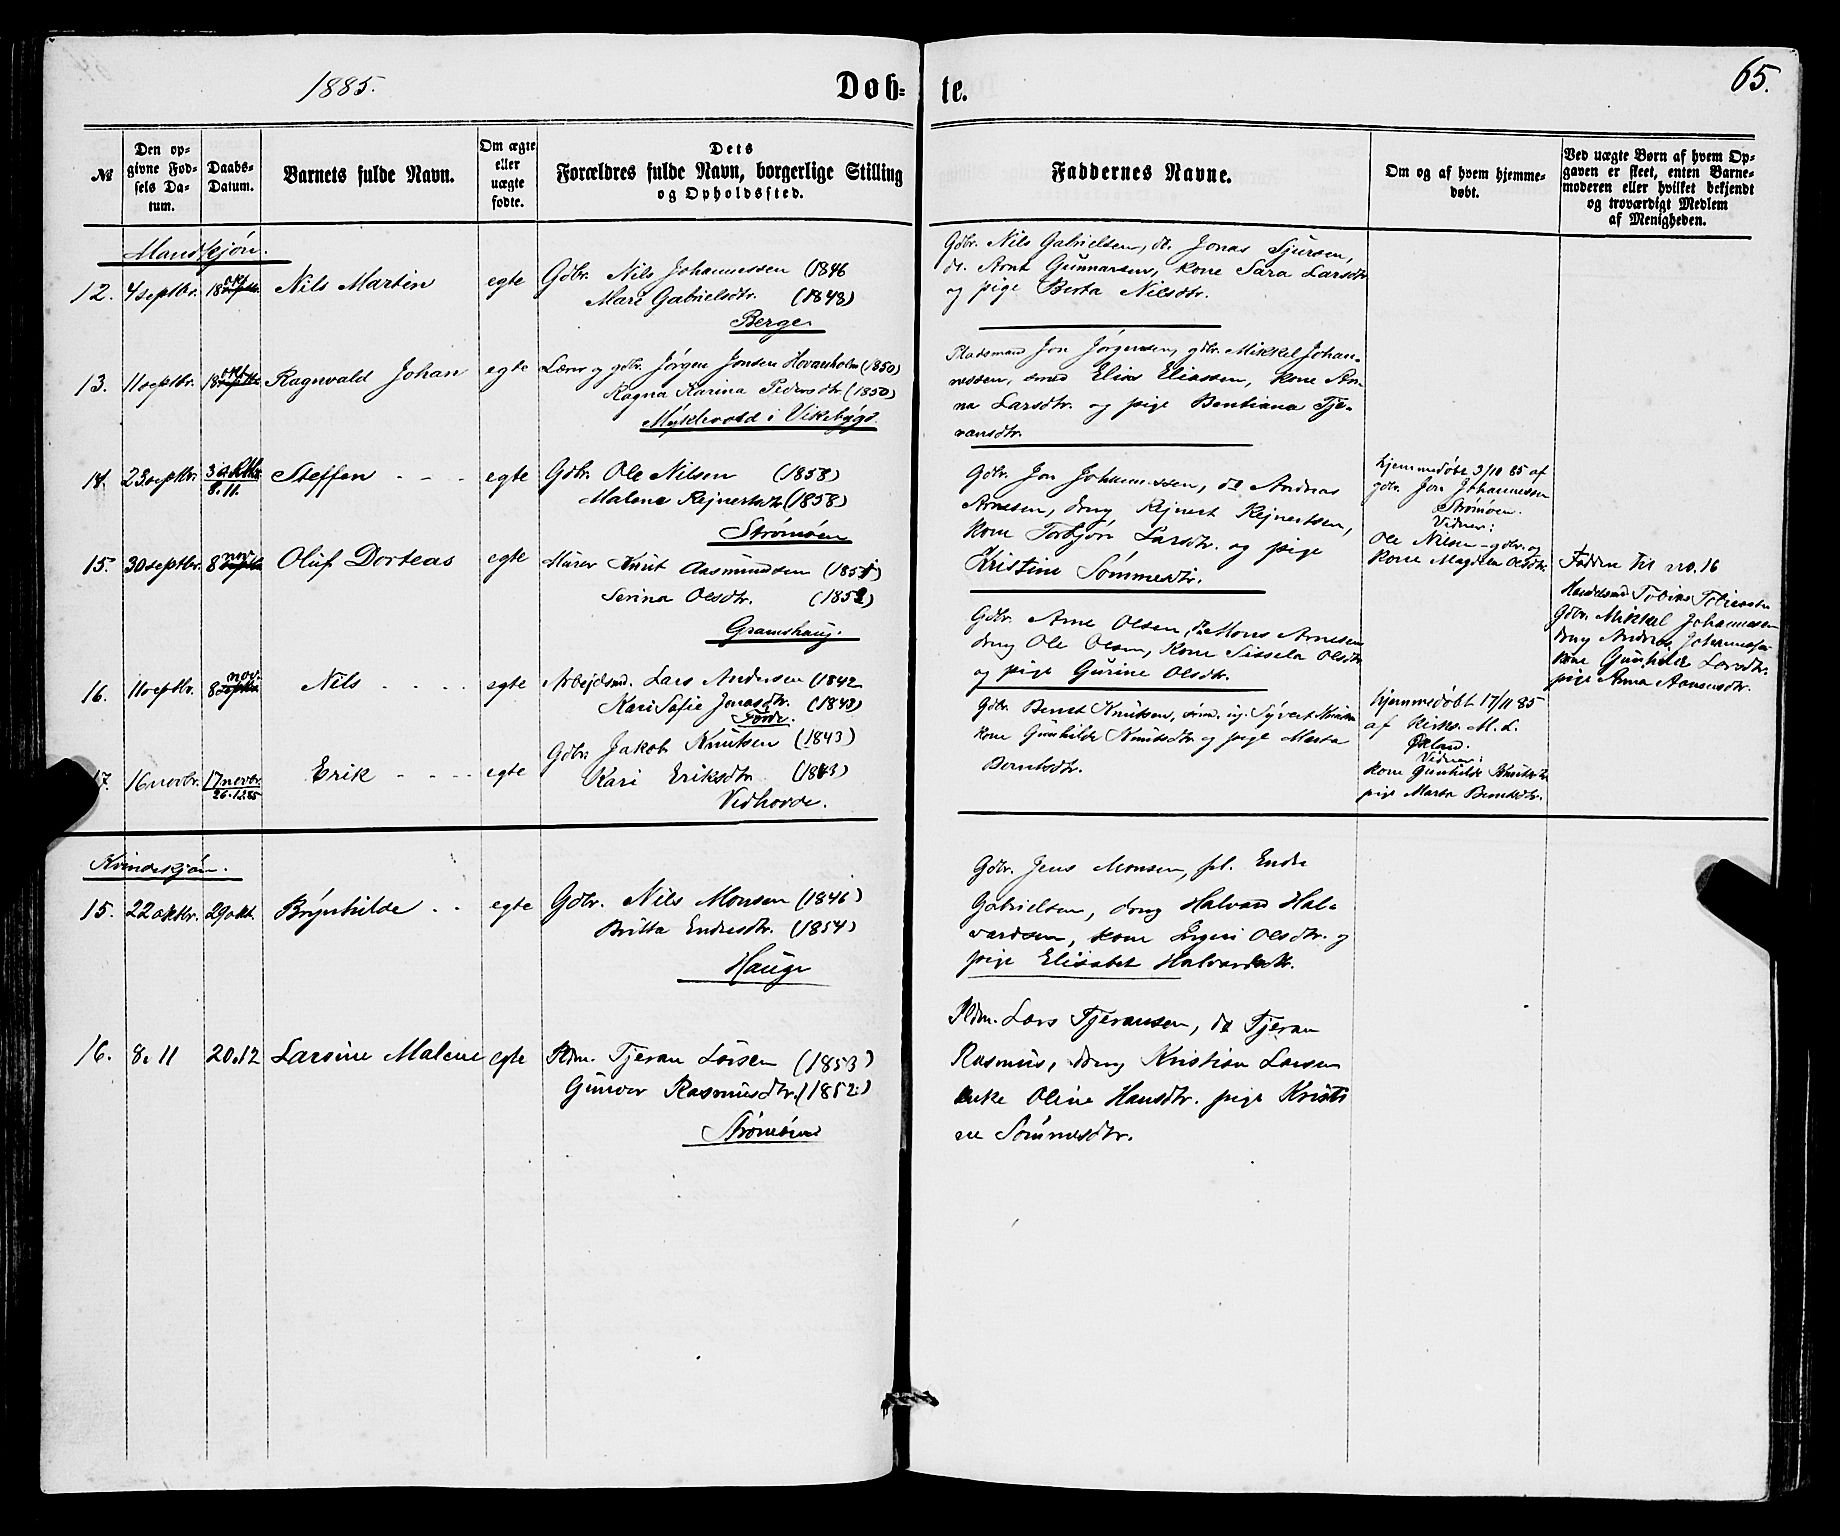 1885.
Døb-
te.
65.
№
Den op-
givne Fød-
sels Da-
tum.
Daabs-
Datum.
Barnets fulde Navn.
Om ægte
eller
uægte
fødte.
Dets
Forældres fulde Navn, borgerlige Stilling
og Opholdssted.
Faddernes Navne.
Om og af hvem hjemme-
døbt.
Ved uægte Børn af hvem Op-
gaven er skeet, enten Barne-
moderen eller hvilket bekjendt
og troværdigt Medlem
af Menigheden.
Mandkjøn.
12. 4 septbr. 18 okt Nils Martin egte Gdbr. Nils Johannessen (1846
Mari Gabrielsdtr. (1848)
Berge
Gdbr. Nils Gabrielsen, do. Jonas Sjursen,
do. Arnt Gunnarsen, kone Sara Larsdtr
og pige Berta Nilsdtr.
13. 11 septbr. 18 okt Ragnvald Johan egte Lærer og gdbr. Jørgen Jonsen Hovanholm (1850)
Ragna Karina Pedersdtr (1850)
Myklevold i Vikebygd
Pladsmand Jon Jørgensen, gdbr. Mikkel Johan-
nessen, smed Elias Eliassen, kone An-
na Larsdtr. og pige Bentiana Tje-
ransdtr.
14. 23 septbr. 3 oktbr
8.11. Steffen - - - egte Gdbr. Ole Nilsen (1858)
Malene Rejnertsdtr (1858)
Strømøen
Gdbr. Jon Johannessen, do Andreas
Arnesen, dreng Rejnert Rejnertsen,
kone Torbjør Larsdtr. og pige
Kristine Sømmesdtr.
hjemmedøbt 3/10 85 af
gdbr. Jon Johannessen
Strømøen.
Vidner:
Ole Nilsen gdbr. og
kone Magdela Olsdtr.
15. 30 septbr. 8 nov. Oluf Dorteas egte Murer Knut Aasmundsen (1851)
Serina Olsdtr. (1852)
Gramshaug.
Gdbr. Arne Olsen, do Mons Arnesen
dreng Ole Olsen, kone Sissela Olsdtr
og pige Gurine Olsdtr.
Faddere til no. 16
Handelsmd Tobias Tobiassen
Gdbr. Mikkel Johannesen
dreng Andreas Johannesen
kone Gunhilde Larsdtr.
pige Anna Aanensdtr.
16. 11 septbr. 8 nov. Nils - - - - egte Arbejdsmd. Lars Andersen (1842
Kari Sofie Jonasdtr. (1848)
Førde.
17. 16 novbr. 17 novbr.
26.12.85 Erik - - - - egte Gdbr. Jakob Knutsen (1843)
Kari Eriksdtr. (1843)
Vidhovde.
Gdbr. Bernt Knutsen, Syvert Knutsen
kone Gunhilde Knutsdtr og pige Marta
Berntsdtr.
hjemmedøbt 17/11 85
af Kirks. M. L.
Økland.
Vidner:
kone Gunhilde Knutsdtr
pige Marta Berntsdtr.
Kvindekjøn.
15. 22 oktbr. 29 okt. Brynhilde - - egte Gdbr. Nils Monsen (1846)
Britta Endresdtr. (1854)
Hauge
Gdbr. Jens Monsen, pl. Endre
Gabrielsen, dreng Halvard Hal-
vardsen, kone Ingeri Olsdtr. og
pige Elisabet Halvardsdtr.
16. 8.11 20.12 Larsine Malene egte Pldm. Tjeran Larsen (1853)
Gunvor Rasmusdtr. (1852)
Strømøen
Pldm. Lars Tjeransen, do Tjeran
Rasmus, dreng Kristian Larsen
enke Oline Hansdtr. pige Kristi
ne Sømmesdtr.